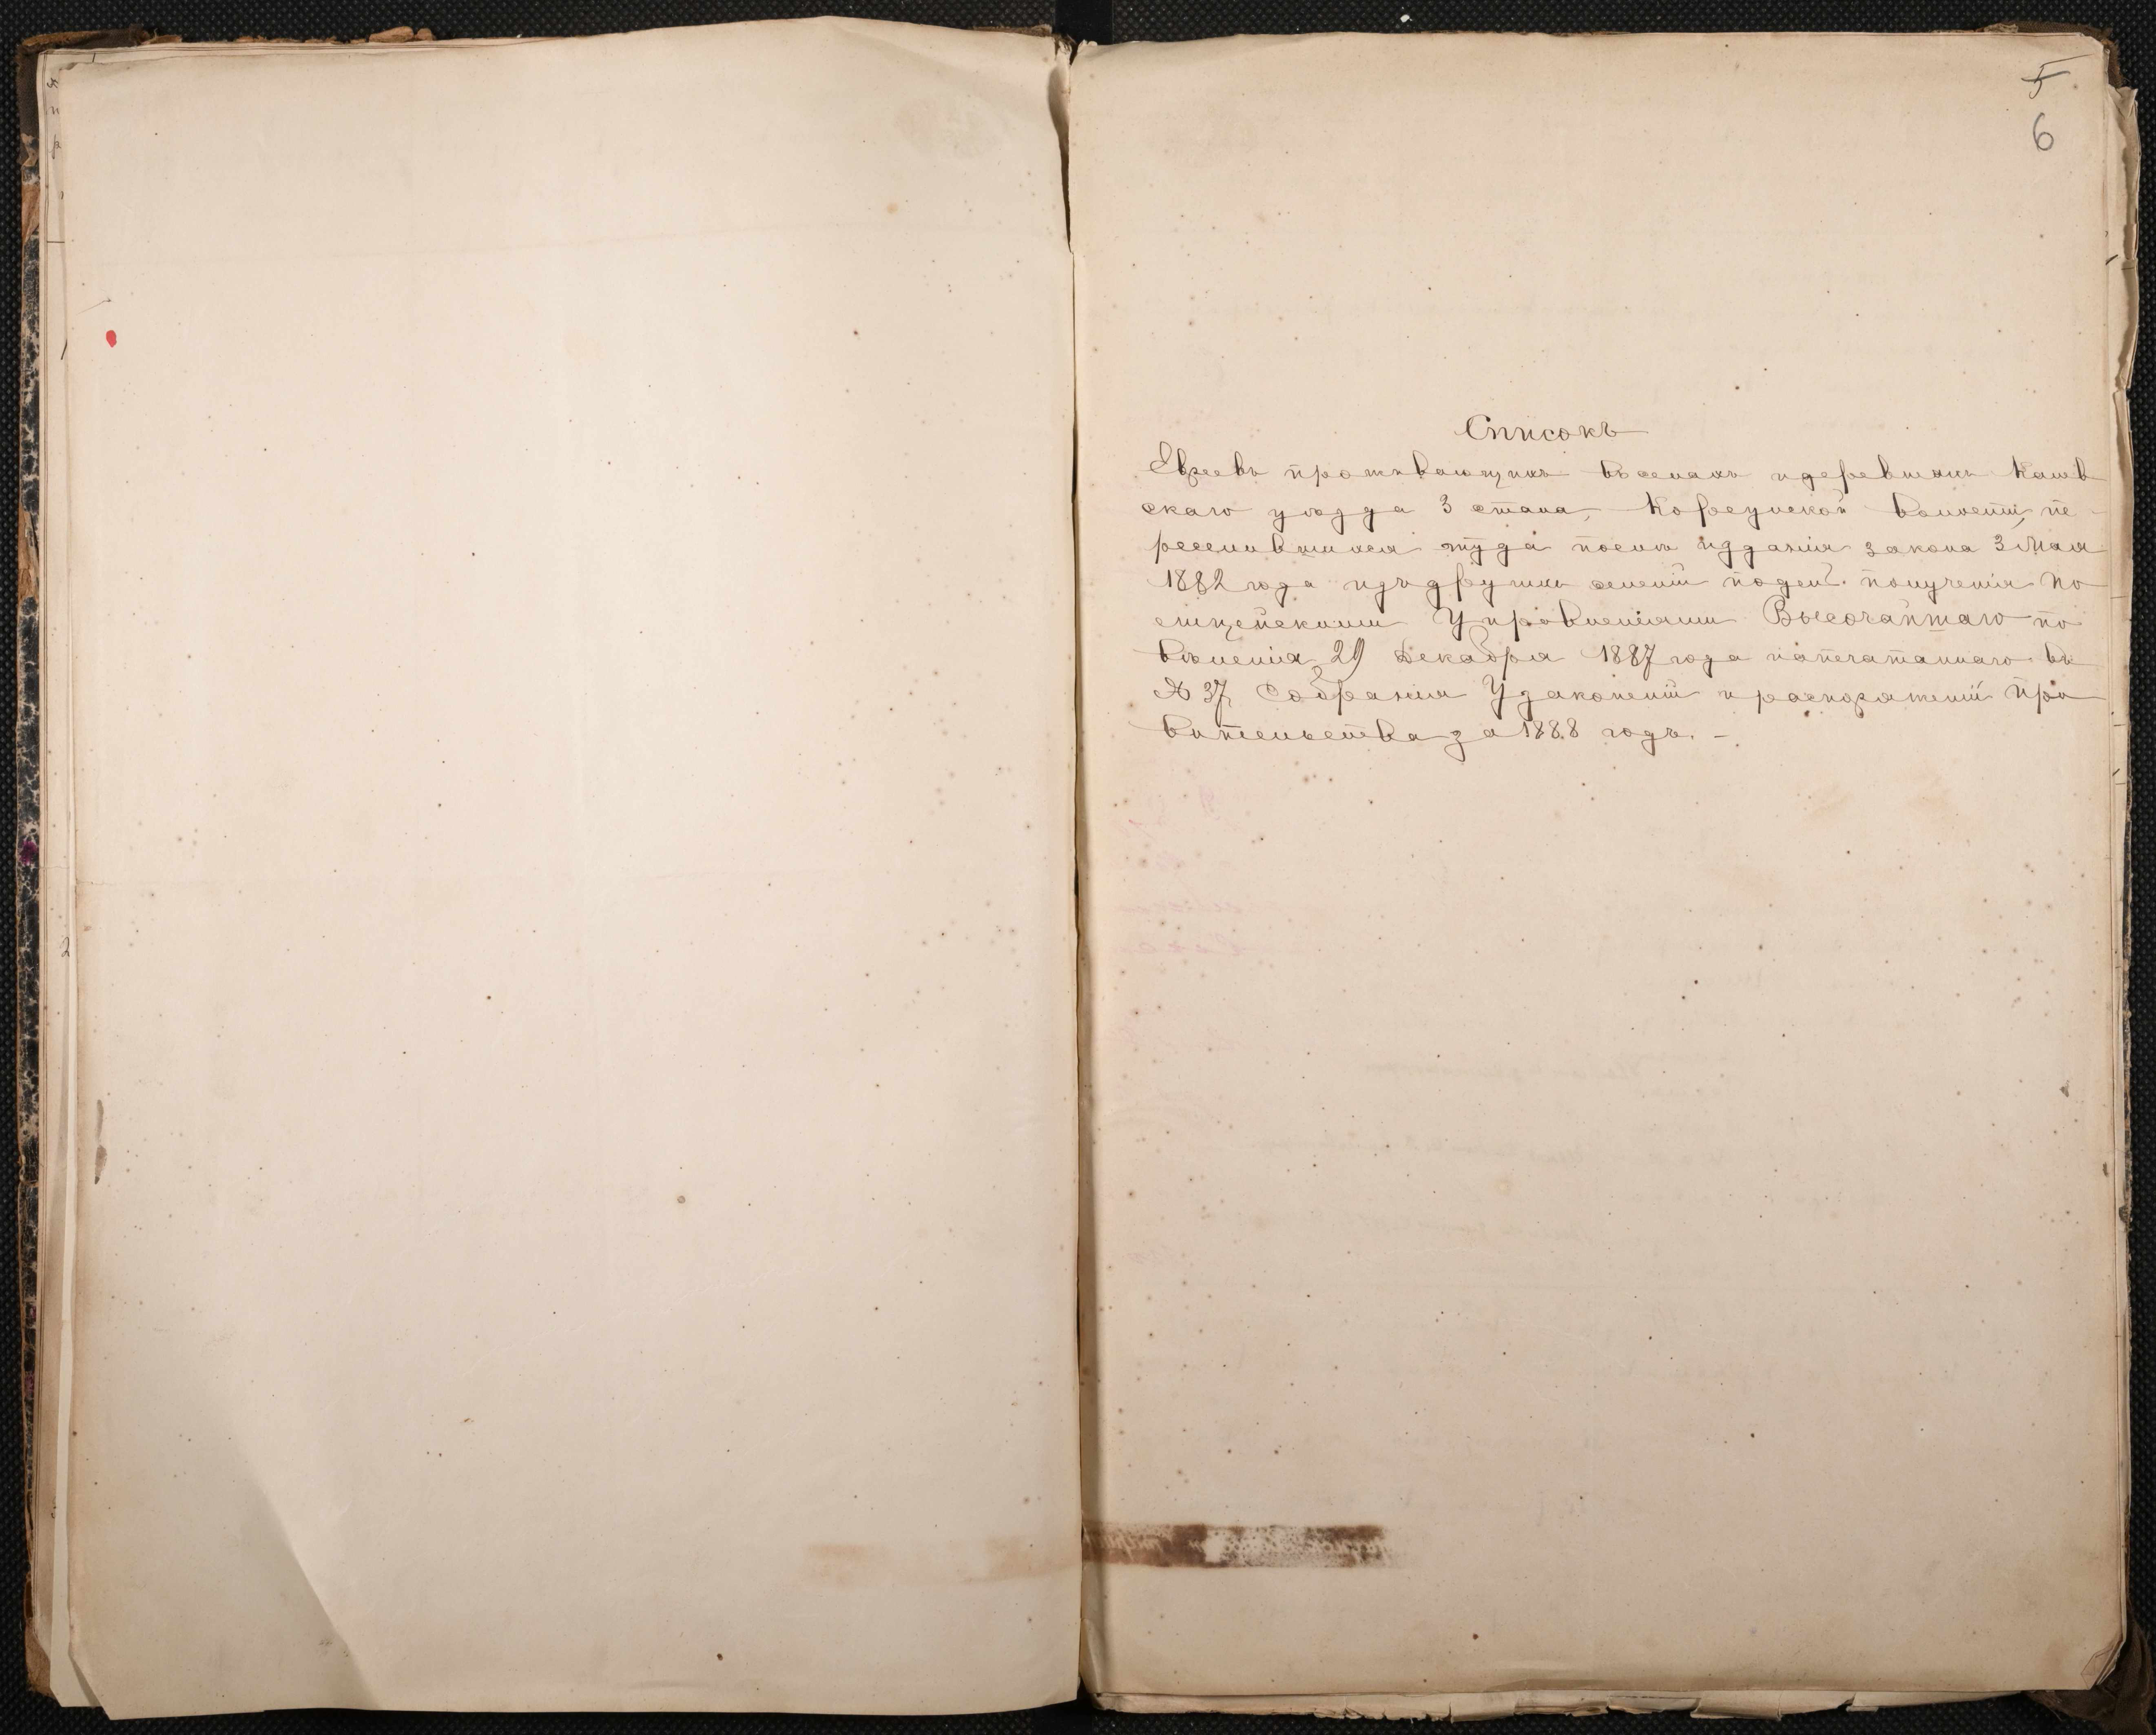 5
6
Списокъ
Евреевъ проживающихъ въ селахъ и деревняхъ Канев
скаго уѣзда 3 стана, Корсунской волости, пе-
реселившихся туда послѣ изданія закона 3 Мая
1882 года изъ другихъ селеній до полученія По
лицейскими Управленіями Высочайшаго по
велѣнія 29 Декабря 1887 года напечатаннаго въ
№ 37, Собранія Узаконеній и распоряженій Пра
вительства за 1888 годъ. -